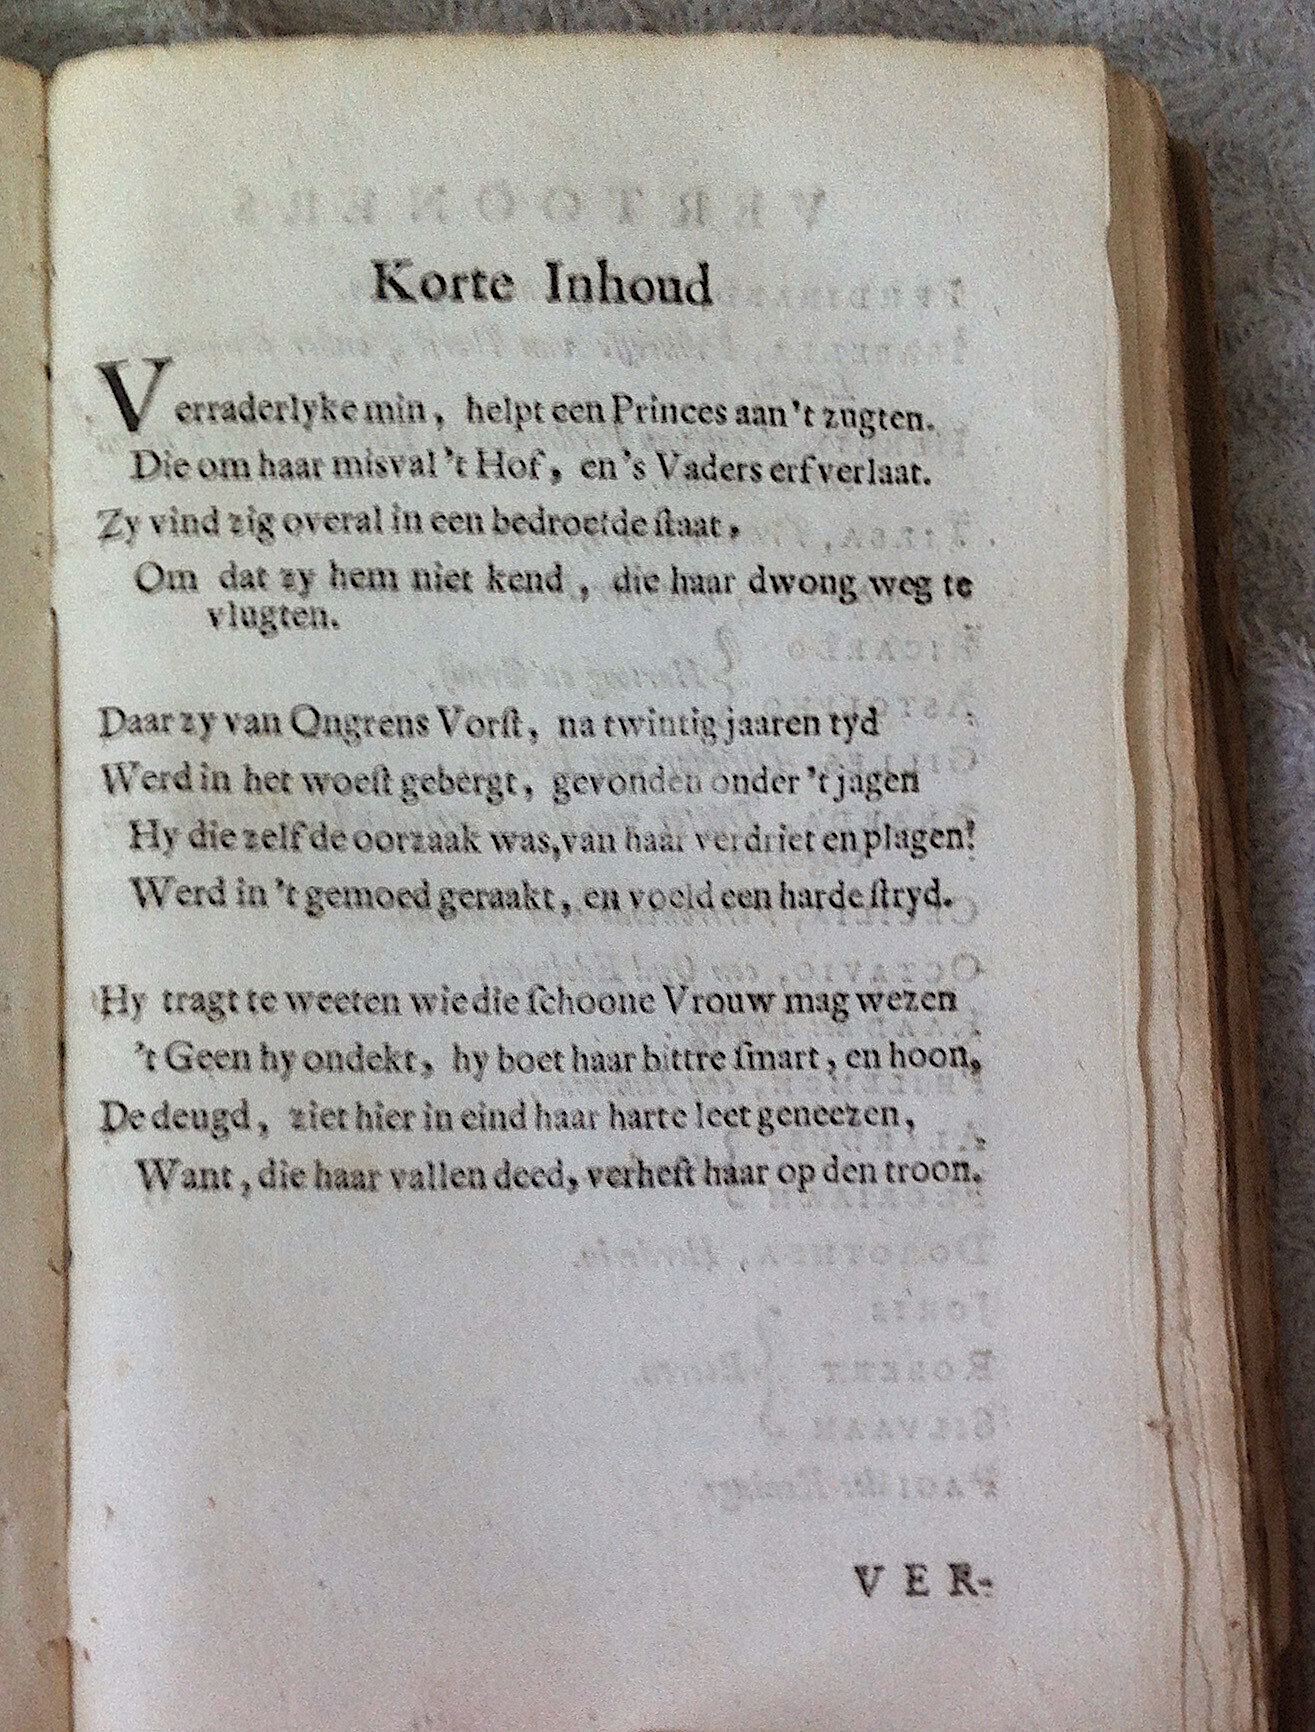 Korte Inhoud
Verraderlyke min, helpt een Princes aan 't zugten.
Die om haar misval 't Hof, en 's Vaders erf verlaat.
Zy vind zig overal in een bedroefde ſtaat,
Om dat zy hem niet kend, die haar dwong weg te
vlugten.
Daar zy van Ongrens Vorſt, na twintig jaaren tyd
Werd in het woeſt gebergt, gevonden onder 't jagen
Hy die zelf de oorzaak was, van haar verdriet en plagen!
Werd in 't gemoed geraakt, en voeld een harde ſtryd.
Hy tragt te weeten wie die ſchoone Vrouw mag wezen
't Geen hy ondekt, hy boet haar bittre ſmart, en hoon,
De deugd, ziet hier in eind haar harte leet geneezen,
Want, die haar vallen deed, verheft haar op den troon.
VER-